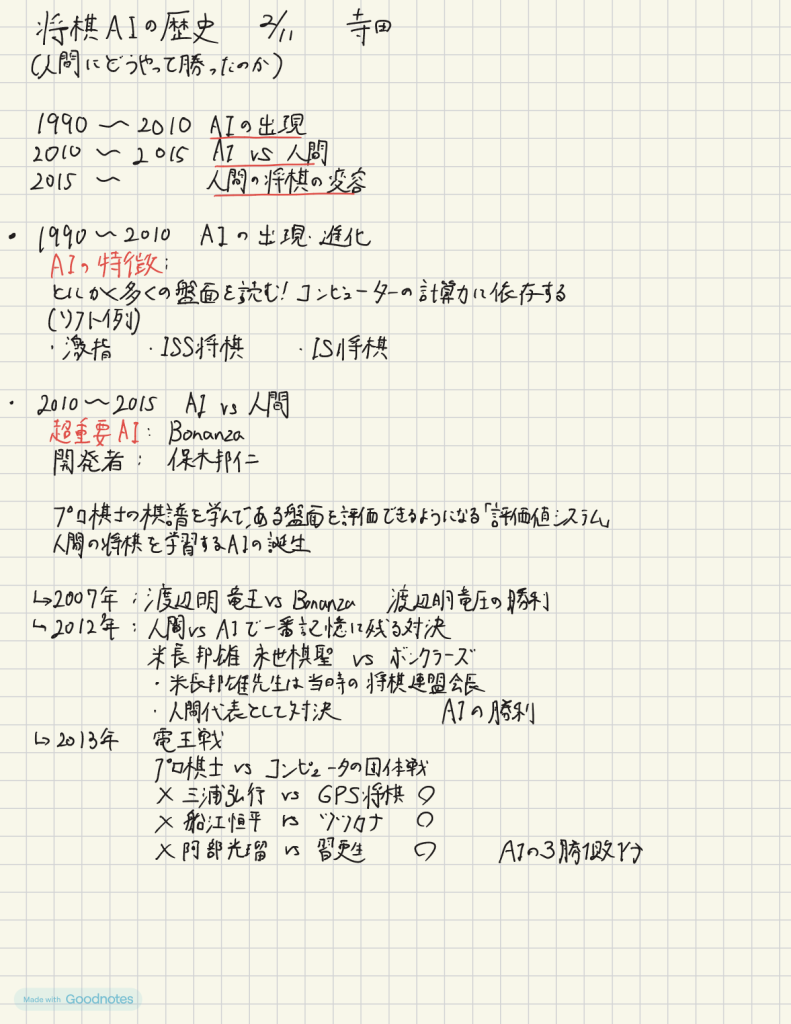 将棋AIの歴史 2/11 寺田
(人間にどうやって勝ったのか)
1990 〜 2010 AIの出現
2010 〜 2015 AI vs 人間
2015 〜 人間の将棋の変容
・ 1990 〜 2010 AI の 出現・進化
AIの特徴:
とにかく多くの盤面を読む! コンピューターの計算力に依存する
(ソフト例)
・激指 ・ISS将棋 ・IS将棋
・ 2010 〜 2015 AI vs 人間
超重要AI: Bonanza
開発者: 保木邦仁
プロ棋士の棋譜を学んで、ある盤面を評価できるようになる「評価値システム」
人間の将棋を学習するAIの誕生
↳2007年:渡辺明竜王vs Bonanza 渡辺明竜王の勝利
↳2012年:人間vs AIで一番記憶に残る対決
米長邦雄 永世棋聖 vs ボンクラーズ
・米長邦雄先生は当時の将棋連盟会長
・人間代表として対決 AIの勝利
↳2013年 電王戦
プロ棋士 vs コンピュータの団体戦
× 三浦弘行 vs GPS将棋 ○
× 船江恒平 vs ツツカナ ○
× 阿部光瑠 vs 習甦 ○ AIの3勝1敗1分
Made with Goodnotes